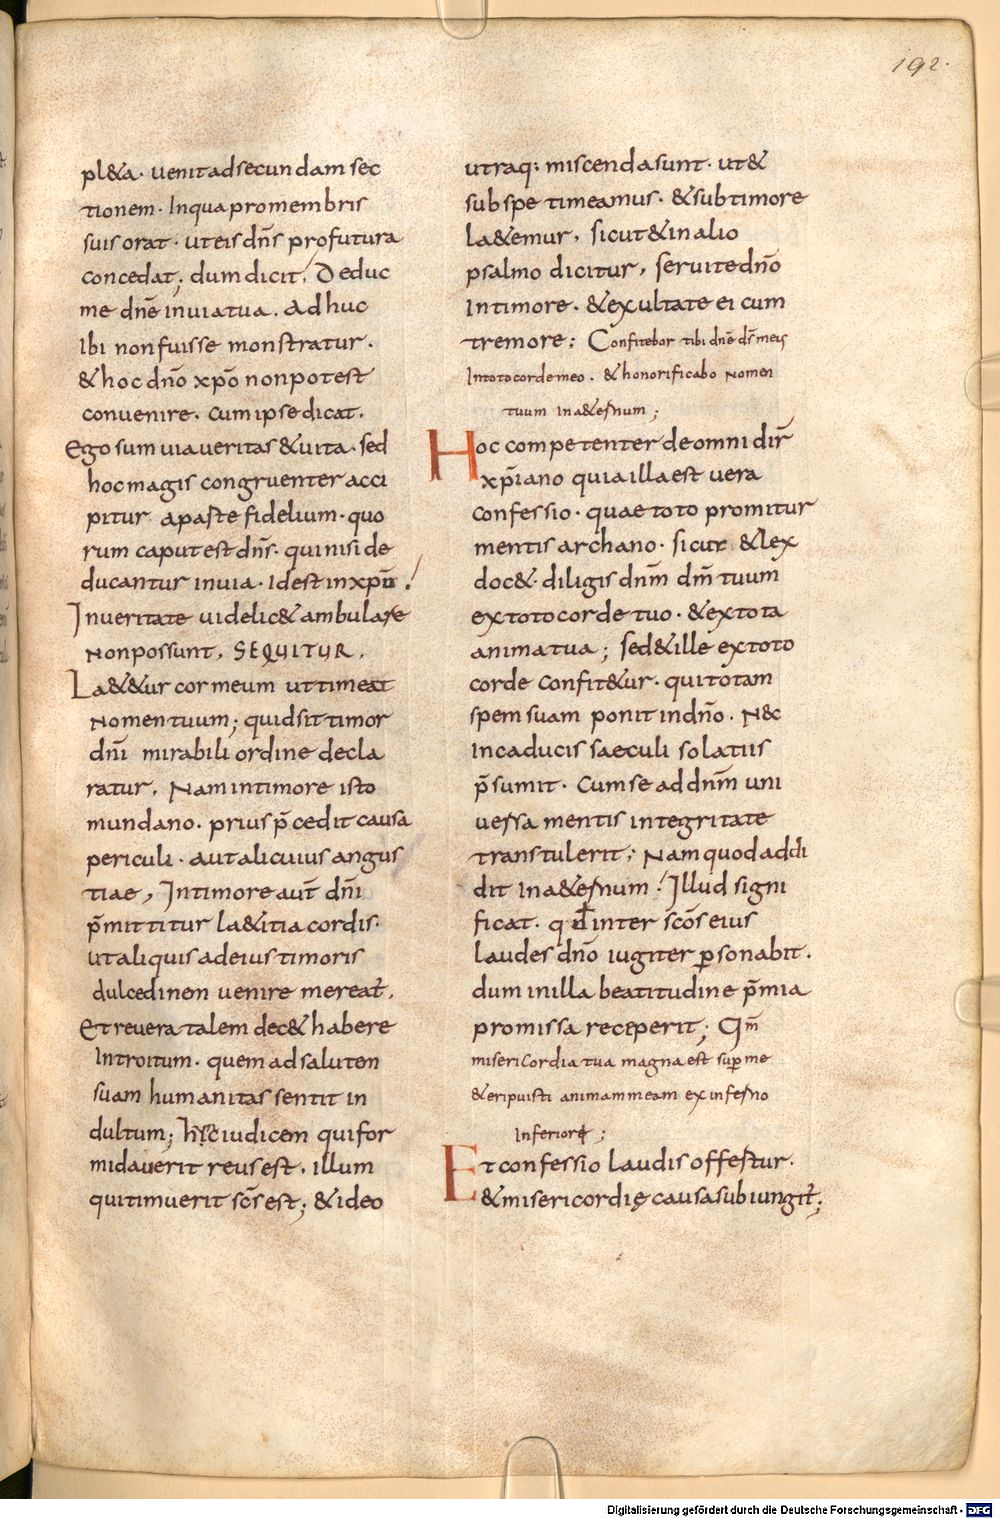 192.
pl&a. uenit ad secundam sec
tionem. In qua pro membris
suis orat. ut eis dn̄s profutura
concedat; dum dicit, Deduc
me dn̄e in uia tua. Adhuc
ibi non fuisse monstratur.
& hoc dn̄o xp̄o non potest
conuenire. cum ipse dicat.
Ego sum uia ueritas & uita. sed
hoc magis congruenter acci
pitur a parte fidelium. quo
rum caput est dn̄s. qui nisi de
ducantur in uia. id est in xp̄o!
In ueritate uidelic& ambulare
Non possunt. SEQUITUR.
La&&ur cor meum ut timeat
Nomen tuum; quid sit timor
dn̄i mirabili ordine decla
ratur. Nam in timore isto
mundano. prius p̄cedit causa
periculi. aut alicuius angus
tiae, In timore aut̄ dn̄i
p̄mittitur la&itia cordis.
ut aliquis ad eius timoris
dulcedinem uenire mereat̄.
Et reuera talem dec& habere
Introitum. quem ad salutem
suam humanitas sentit in
dultum; hsc̄ iudicem qui for
midauerit reus est. illum
qui timuerit sc̄s est; & ideo
utraq; miscenda sunt. ut &
sub spe timeamus. & sub timore
la&emur. sicut & in alio
psalmo dicitur, seruite dn̄o
In timore. & exultate ei cum
tremore; Confitebor tibi dn̄e ds̄ meus
In toto corde meo. & honorificabo Nomen
tuum in a&ernum;
Hoc competenter de omni dir̄
xp̄iano quia illa est uera
confessio. quae toto promitur
mentis archano. sicut & lex
doc&. diligis dn̄m dm̄ tuum
ex toto corde tuo. & ex tota
anima tua; sed & ille ex toto
corde confit&ur. qui totam
spem suam ponit in dn̄o. N&c
In caducis saeculi solatiis
p̄sumit. Cum se ad dn̄m uni
uersa mentis integritate
transtulerit; Nam quod addi
dit in a&ernum! Illud signi
ficat. qđ inter sc̄os eius
laudes dn̄o iugiter ꝑsonabit.
dum in illa beatitudine p̄mia
promissa receperit; Qm̄
misericordia tua magna est suꝑ me
& eripuisti animam meam ex inferno
Inferiore;
Et confessio laudis offertur.
& misericordię causa subiungit̄;
Digitalisierung gefördert durch die Deutsche Forschungsgemeinschaft - DFG